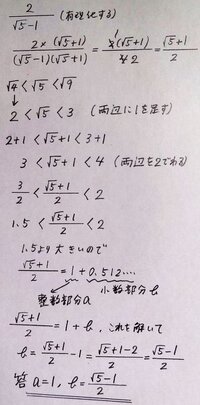 2/(√5-1) (有理化する)
2×(√5+1)/(√5-1)(√5+1) = 2(√5+1)/4 2 = (√5+1)/2
√4<√5<√9
↓
2<√5<3 (両辺に1を足す)
2+1<√5+1<3+1
3<√5+1<4 (両辺を2でわる)
3/2<(√5+1)/2<2
1.5<(√5+1)/2<2
1.5より大きいので
(√5+1)/2=1+0.512....
整数部分a 小数部分b
(√5+1)/2=1+b, これを解いて
b=(√5+1)/2-1=(√5+1-2)/2=(√5-1)/2
答 a=1, b=(√5-1)/2